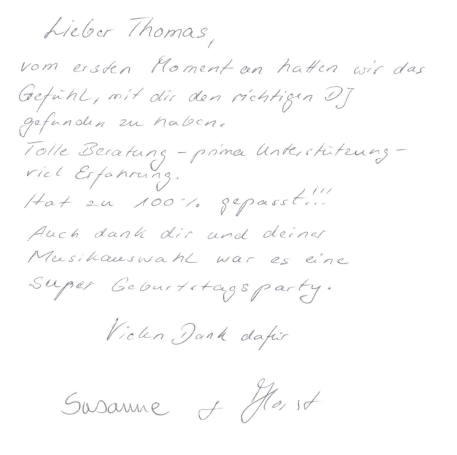 Lieber Thomas,
vom ersten Moment an hatten wir das
Gefühl, mit dir den richtigen DJ
gefunden zu haben.
Tolle Beratung - prima Unterstützung -
viel Erfahrung.
Hat zu 100% gepasst!!!
Auch dank dir und deiner
Musikauswahl war es eine
super Geburtstagsparty.
Vielen Dank dafür
Susanne + Horst